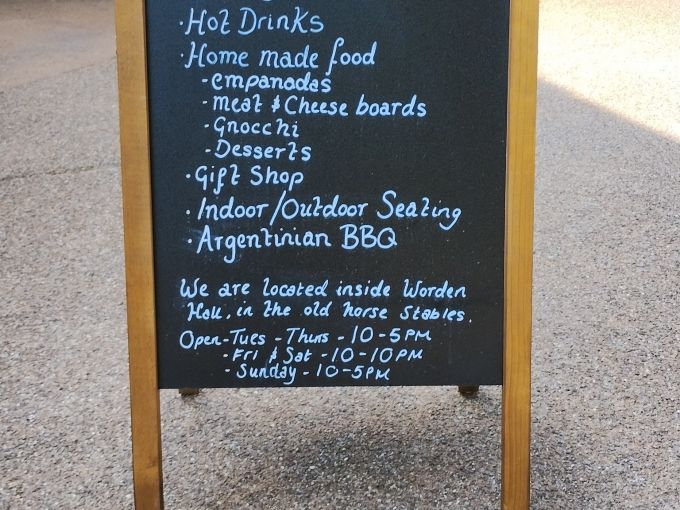 · Hot Drinks
· Home made food
- empanadas
- meat & Cheese boards
- Gnocchi
- Desserts
· Gift Shop
· Indoor/Outdoor Seating
· Argentinian BBQ
We are located inside Worden
Hall, in the old horse Stables.
Open - Tues - Thurs - 10-5PM
· Fri & Sat - 10-10PM
- Sunday - 10-5PM